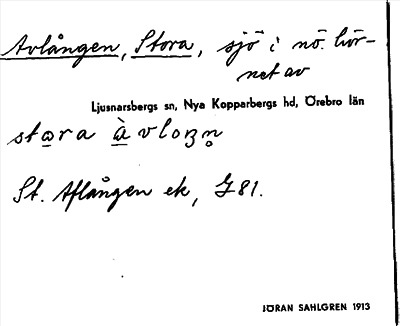 Avlången, Stora, sjö i nö. hör-
net av
Ljusnarsbergs sn, Nya Kopparbergs hd, Örebro län
stora àvloŋn̥
St. Aflången ek, J 81.
JÖRAN SAHLGREN 1913